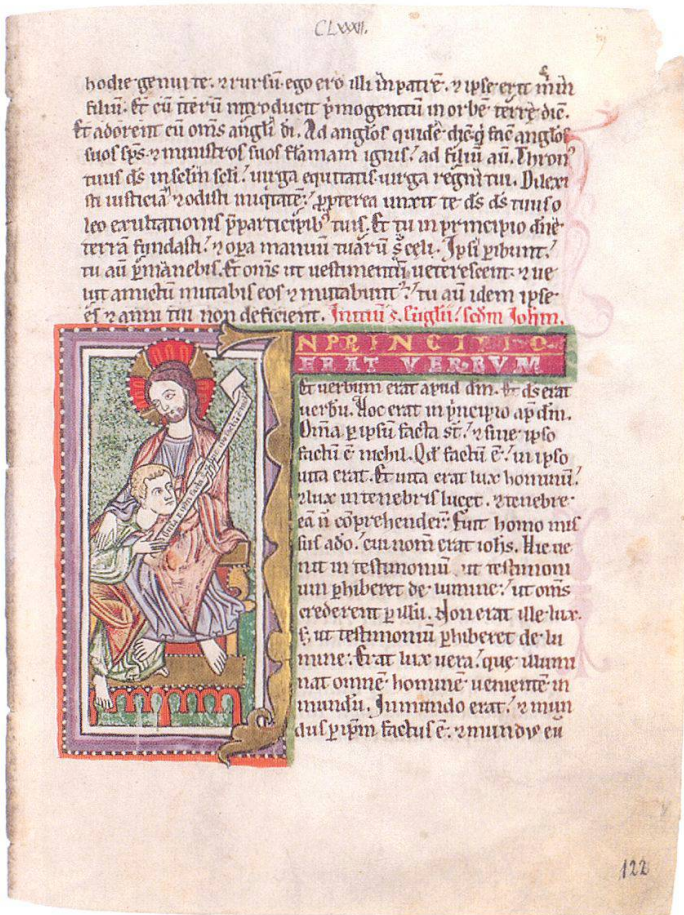 CLXXXII.
hodie genui te. ⁊ rursū ego ero illi in patrē. ⁊ ipse erit m̄ in
filiū. Et cū iterū introducit p̄mogenitū in orbē terrę dic̄.
Et adorent eū om̄s angli di. Ad anglos quidē dic̄ q̄ fac̄ anglos
suos sp̄s. ⁊ ministros suos flāmam ignis. ad filiū aū. Thron᷒
tuus d̄s in sclm̄ scli. uirga equitatis uirga regni tui. Dilexi
sti iusticiā ⁊ odisti iniqitatē. ꝓpterea unxit te d̄s d̄s tuus o
leo exultationis p̄ participib᷒ tuis. Et tu in principio dn̄e
terrā fundasti. ⁊ oꝑa manuū tuarū s̄ celi. Ipsi ꝑibunt.
tu aū ꝑmanebis. Et om̄s ut uestimentū ueterescent. ⁊ ue
ut amictū mutabis eos ⁊ mutabunt᷒. tu aū idem ipse
es ⁊ anni tui non deficient. Initiū s. euglii. scdm Iohm.
IN PRINCIPIO
ERAT VERBVM
Et uerbum erat apud dm̄. Et d̄s erat
uerbū. Hoc erat in p̓ncipio ap̄ dm̄.
Om̄a ꝑ ipsū facta st̄. ⁊ sine ipso
factū ē nichil. Qd̓ factū ē. in ipso
uita erat. Et uita erat lux hominū.
⁊ lux in tenebris lucet. ⁊ tenebre
eā n̄ cōprehender̄. Fuit homo mis
sus a do. cui nom̄ erat iohs. Hic ue
nit in testimoniū ut testimoni
um ꝑhiberet de lumine. ut om̄s
crederent ꝑ illū. Non erat ille lux.
s; ut testimoniū ꝑhiberet de lu
mine. Erat lux uera. que illumi
nat omnē hominē uenientē in
mundū. In mundo erat. ⁊ mun
dus ꝑ ip̄m factus ē. ⁊ mundus eū
122